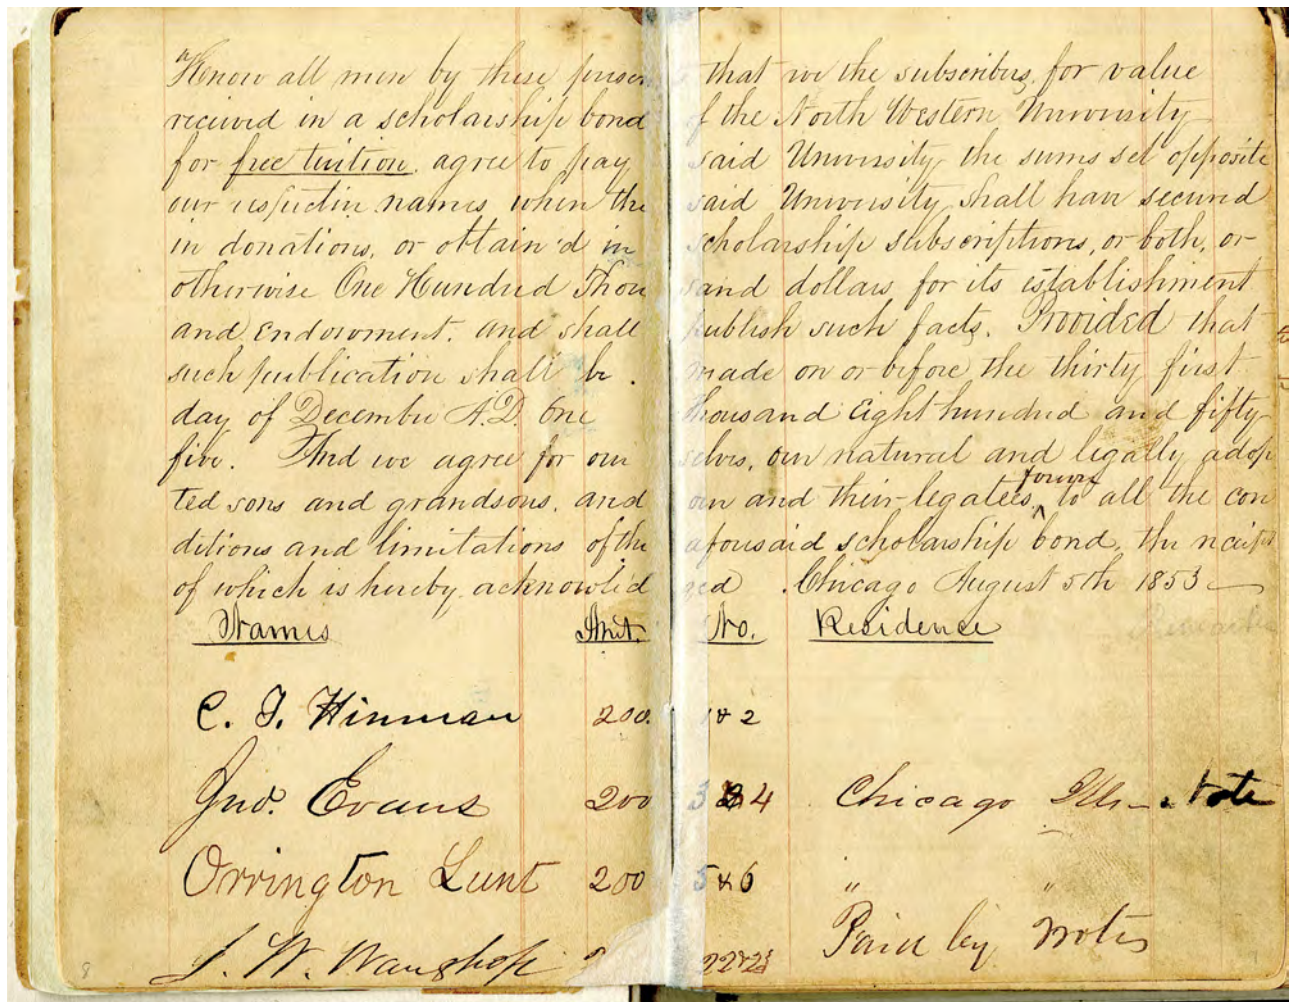 Know all men by these presen that we the subscribers, for value
received in a scholarship bond of the North Western University
for free tuition, agree to pay said University the sums set opposite
our respective names when the said University shall have secured
in donations, or obtain'd in scholarship subscriptions, or both, or
otherwise One Hundred Thou sand dollars for its establishment
and Endowment. and shall publish such facts. Provided that
such publication shall be. made on or before the thirty first
day of December A.D. One thousand Eight hundred and fifty
five. And we agree for our selves, our natural and legally adop
ted sons and grandsons, and our and their legatees, to all the con
ditions and limitations of the aforesaid scholarship bond, the receipt
of which is hereby acknowled ged . Chicago August 5th 1853
Names Amt. No. Residence Remarks
C. T. Hinman 200. 1 & 2
Jno. Evans 200 3 & 4 Chicago Ills - . Note
Orrington Lunt 200 5 & 6 " "
J. W. Waughop 22 & 23 Paid by Notes
8